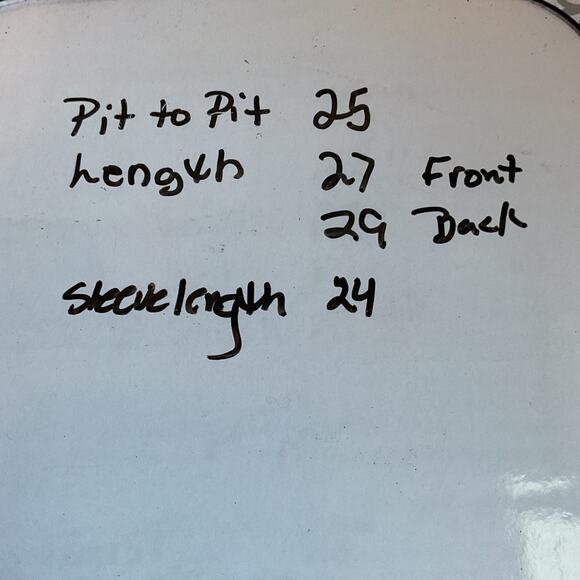 Pit to Pit 25
Length 27 Front
29 Back
Sleeve length 24